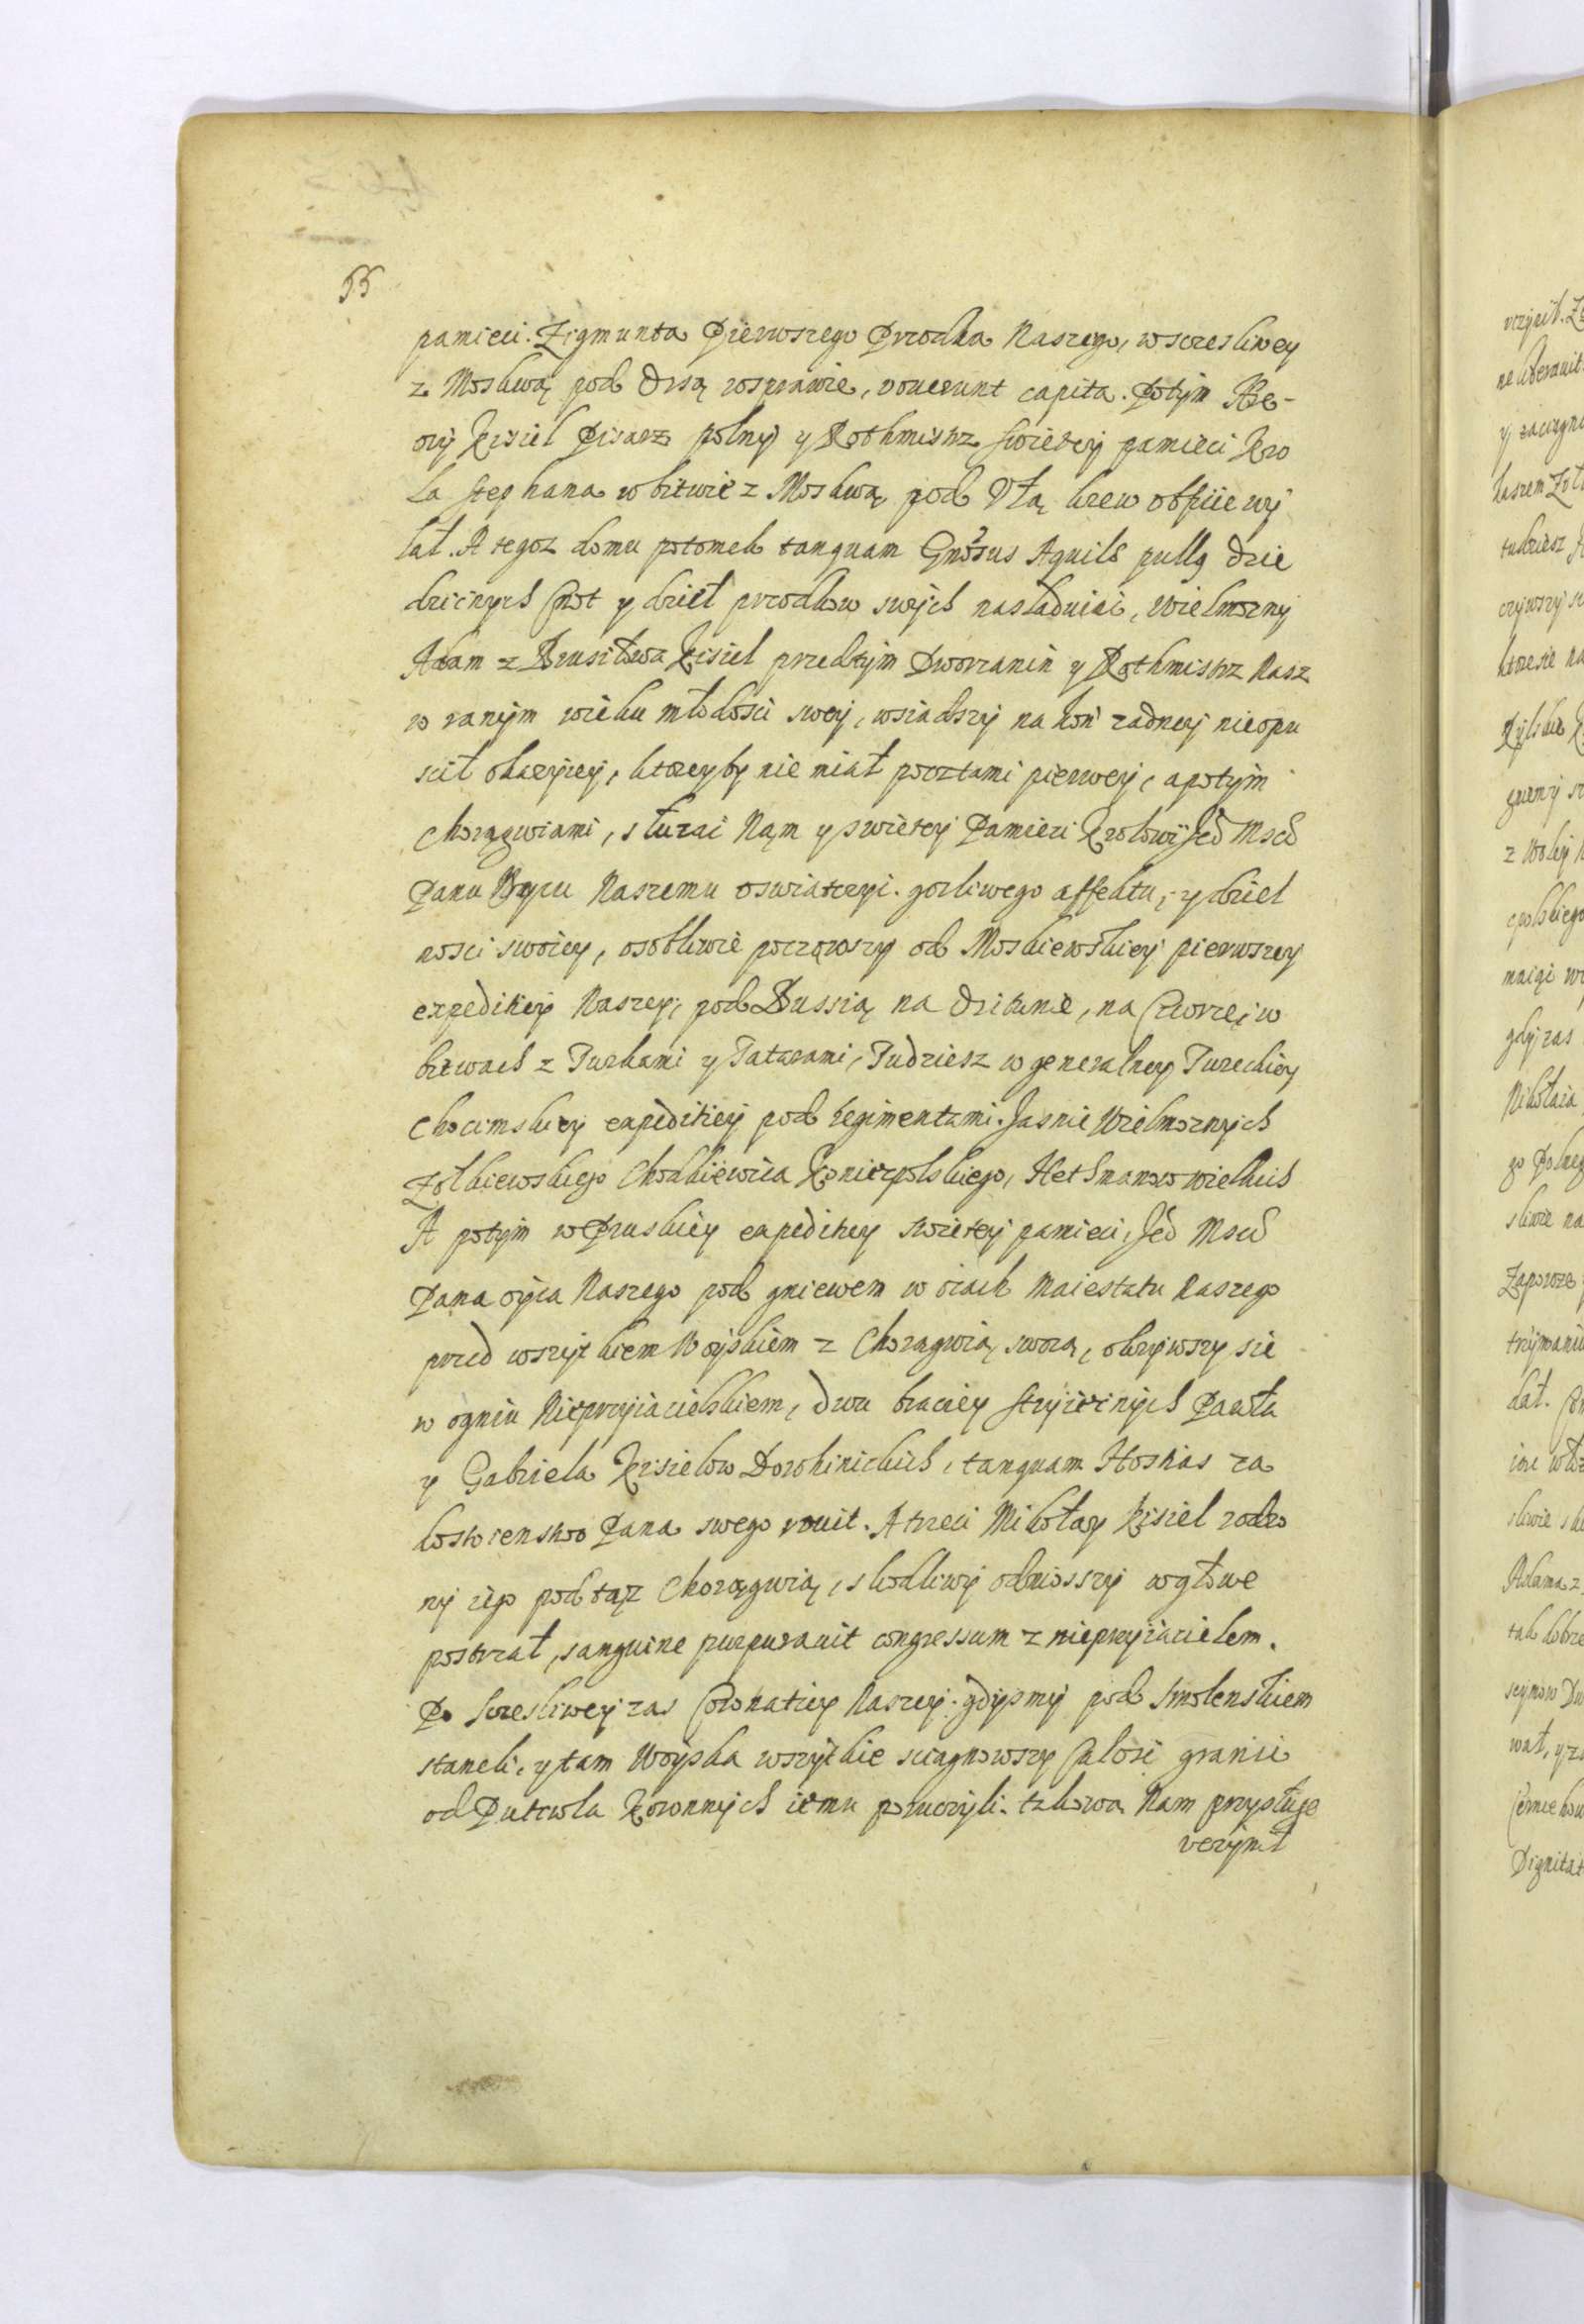 55
pamieci. Zigmunta Pierwszego Przodka Naszego, wsczesliwey
z Moskwą pod Orsą rosprawie, vouerunt capita. Potym
Kisiel Pisarz polny y Rothmistrz swietey pamieci Kro
la Stephana w bitwie z Moskwą pod Vłą krew obficie wy
lał. A tegoz domu potomek tanquam Gnõsus Aquilæ pullq dzie
dzicnych Cnot y dzieł przodkow swych nasladuiąc, Wielmozny
Adam z Brusiłowa Kisiel przedtym Dworzanin y Rothmistrz Nasz
w ranym wieku młodosci swey, wsiadszy na koń zadney nieopu
scił okazyiey, ktoreyby nie miał pocztami pierwey, apotym
chorągwiami, słuzac Nąm y swietey Pamieci Krolowi Jeo Msci
Panu Oycu Naszemu oswiatczyc. gorliwego affektu, y dziel
nosci swoiey, osobliwie począwszy od Moskiewskiey pierwszey
expeditiey Naszey, pod Bussią na Dzikunie, na Cecorze, w
bitwach z Turkami y Tatarami, Tudziesz w generalney Tureckiey
Chocimskiey expeditiey pod regimentami. Jasnie Wielmoznych
Zołkiewskiego Chodkiewica Koniecpolskiego, Hetmanow wielkich
A potym w Pruskiey expeditiey swietey pamieci, Jeo Msci
Pana oyca Naszego pod gniewem w ocach Maiestatu Naszego
przed wszytkiem Woyskiem z Chorągwią swoią, okrywszy sie
w ogniu Nieprzyiacielskiem, dwu braciey stryiecnych Pawła
y Gabriela Kisielow Dorohinickich, tanquam Hostias za
dostoienstwo Pana swego vouit. A trzeci Mikołay Kisiel rodzo
ny iego pod tąz Chorągwią, skodliwy odniosszy wgłowe
postrzał, sanguine purpurauit congressum z nieprzyiacielem.
Po sczesliwey zas Coronatiey Naszey. gdysmy pod Smolenskiem
staneli, y tam Woyska wszytkie sciągnowszy Całość granic
od Putiwla Koronnych iemu poruczyli. takową Nam przysługe
vczynił